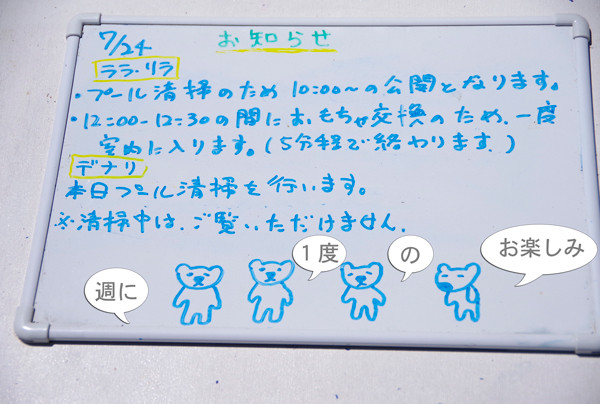 7/24
お知らせ
ララ・リラ
・プール清掃のため 10:00〜の公開となります。
・12:00-12:30の間におもちゃ交換のため、一度
室内に入ります。(5分程で終わります.)
デナリ
本日プール清掃を行います。
※清掃中は、ご覧いただけません.
週に
1度
の
お楽しみ